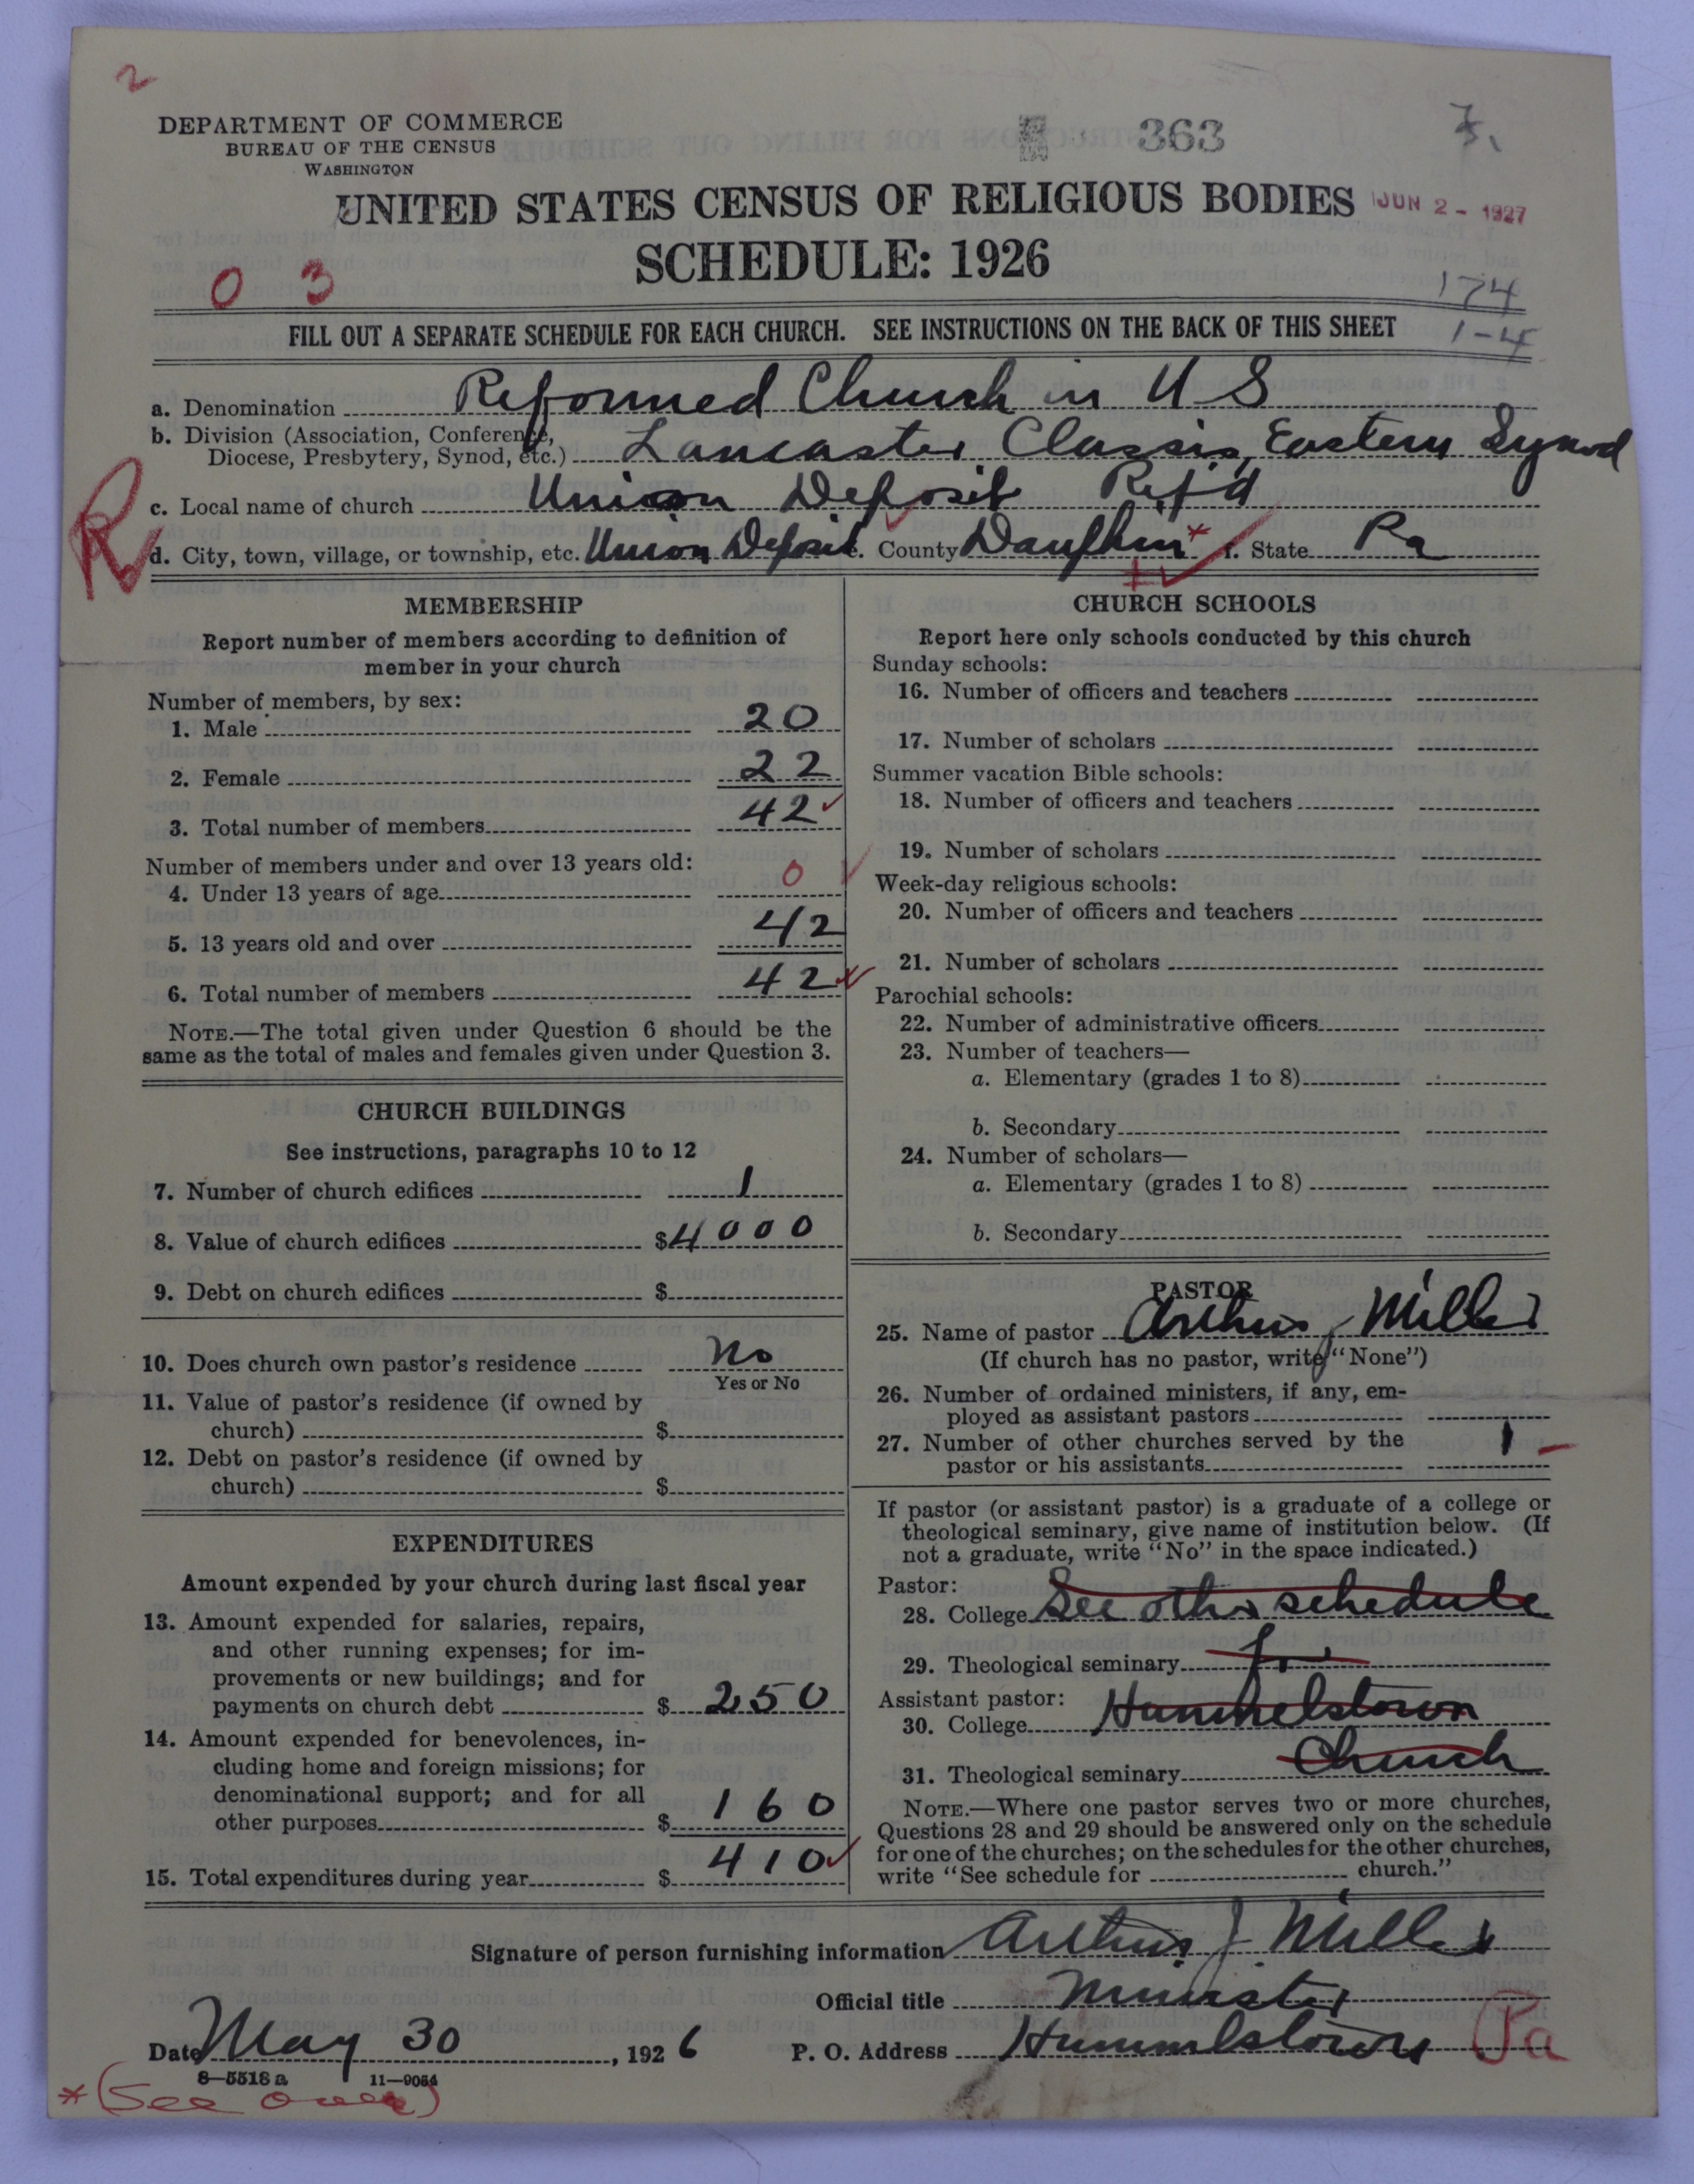 2
DEPARTMENT OF COMMERCE
BUREAU OF THE CENSUS
WASHINGTON
363
UNITED STATES CENSUS OF RELIGIOUS BODIES
JUN 2 - 1927
SCHEDULE: 1926
0 3
174
FILL OUT A SEPARATE SCHEDULE FOR EACH CHURCH. SEE INSTRUCTIONS ON THE BACK OF THIS SHEET
1-4
a. Denomination Reformed Church in U S
b. Division (Association, Conference,
Diocese, Presbytery, Synod, etc.) Lancaster Classis, Eastern Synod
c. Local name of church Union Deposit Ref'd
d. City, town, village, or township, etc. Union Deposit e. County Dauphin* f. State Pa
MEMBERSHIP
Report number of members according to definition of
member in your church
Number of members, by sex:
1. Male 20
2. Female 22
3. Total number of members 42
Number of members under and over 13 years old:
4. Under 13 years of age 0
5. 13 years old and over 42
6. Total number of members 42
NOTE.—The total given under Question 6 should be the
same as the total of males and females given under Question 3.
CHURCH BUILDINGS
See instructions, paragraphs 10 to 12
7. Number of church edifices 1
8. Value of church edifices $4000
9. Debt on church edifices $
10. Does church own pastor's residence No
Yes or No
11. Value of pastor's residence (if owned by
church) $
12. Debt on pastor's residence (if owned by
church) $
EXPENDITURES
Amount expended by your church during last fiscal year
13. Amount expended for salaries, repairs,
and other running expenses; for im-
provements or new buildings; and for
payments on church debt $ 250
14. Amount expended for benevolences, in-
cluding home and foreign missions; for
denominational support; and for all
other purposes $ 160
15. Total expenditures during year $ 410
CHURCH SCHOOLS
Report here only schools conducted by this church
Sunday schools:
16. Number of officers and teachers
17. Number of scholars
Summer vacation Bible schools:
18. Number of officers and teachers
19. Number of scholars
Week-day religious schools:
20. Number of officers and teachers
21. Number of scholars
Parochial schools:
22. Number of administrative officers
23. Number of teachers—
a. Elementary (grades 1 to 8)
b. Secondary
24. Number of scholars—
a. Elementary (grades 1 to 8)
b. Secondary
PASTOR
25. Name of pastor Arthur J Miller
(If church has no pastor, write "None")
26. Number of ordained ministers, if any, em-
ployed as assistant pastors
27. Number of other churches served by the
pastor or his assistants 1
If pastor (or assistant pastor) is a graduate of a college or
theological seminary, give name of institution below. (If
not a graduate, write "No" in the space indicated.)
Pastor:
28. College See other schedule
29. Theological seminary for
Assistant pastor:
30. College Hummelstown
31. Theological seminary Church
NOTE.—Where one pastor serves two or more churches,
Questions 28 and 29 should be answered only on the schedule
for one of the churches; on the schedules for the other churches,
write "See schedule for church."
Signature of person furnishing information Arthur J Miller
Official title Minister
Date May 30, 1926 P. O. Address Hummelstown Pa
8—5518 a 11—9054
*(See over)